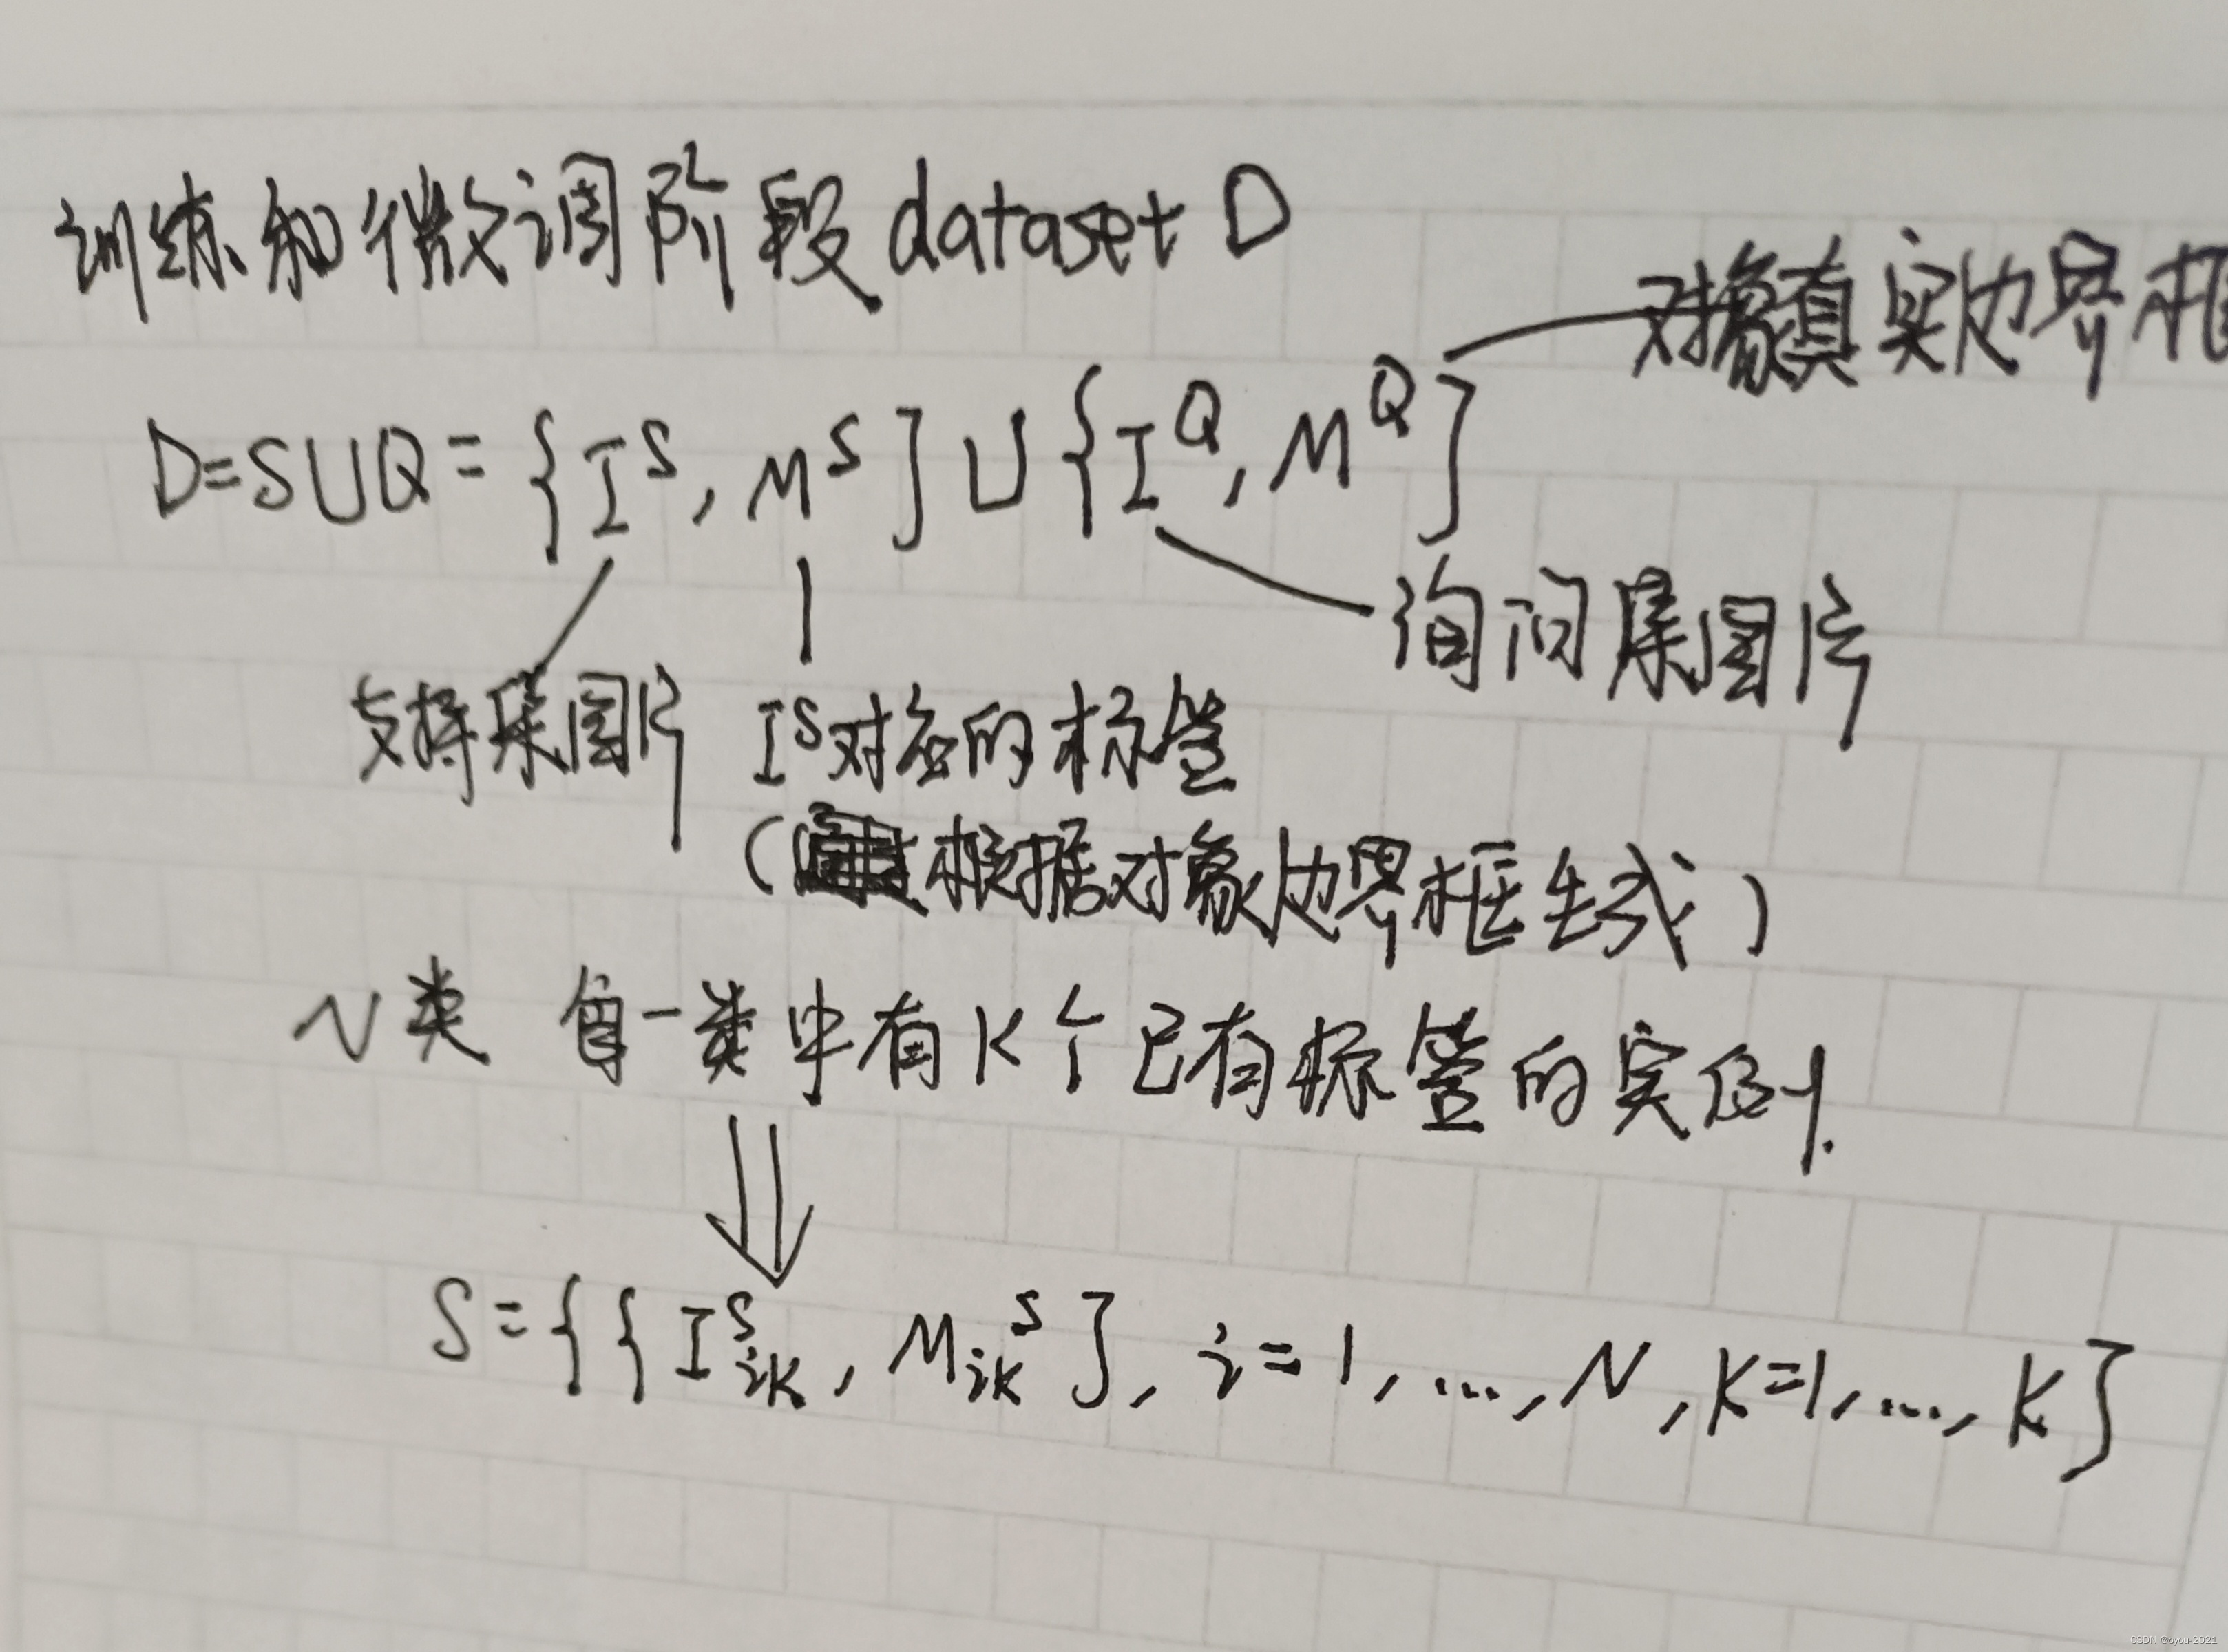 训练和微调阶段dataset D
对象真实边界框
D=S∪Q={I^S,M^S}∪{I^Q,M^Q}
询问集图片
支持集图片 I^S对应的标签
(根据对象边界框生成)
N类 每一类中有K个已有标签的实例.
S={{I^S_ik,M_ik^S},i=1,...,N,K=1,...,K}
CSDN @oyou-2021